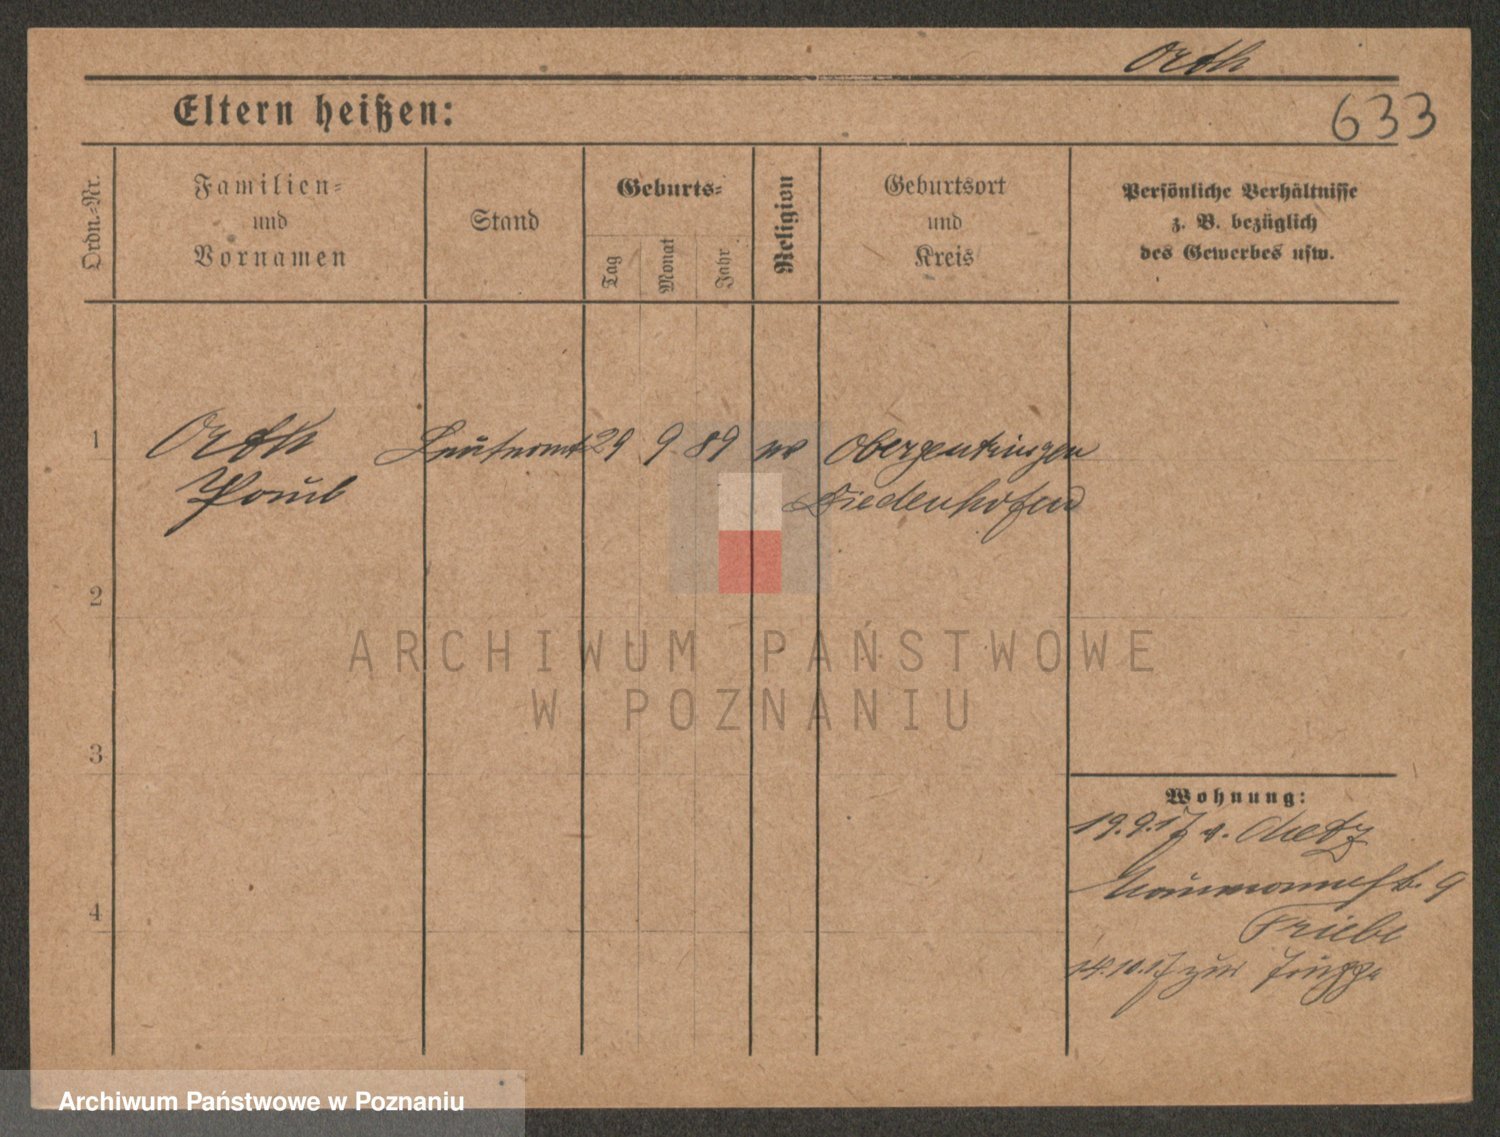 Orth
Eltern heißen:
633
Ordn.-Nr.
Familien-
und
Vornamen
Stand
Geburts-
Tag
Monat
Jahr
Religion
Geburtsort
und
Kreis
Persönliche Verhältnisse
z. B. bezüglich
des Gewerbes usw.
1 Orth Leutnant 29 9 89 Obergentringen
Paul Diedenhofen
2
ARCHIWUM PAŃSTWOWE
W POZNANIU
3
Wohnung:
19.9.17 v. Metz
Naumannstr. 9
Friebe
4
14.10.17 zur Truppe
Archiwum Państwowe w Poznaniu